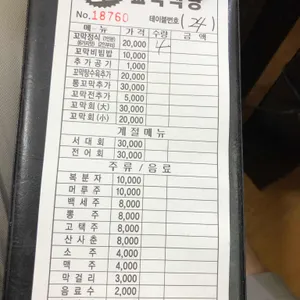 꼬막식당
No. 18760 테이블번호 ( 24 )
메뉴 가격 수량 금액
꼬막정식 (1인분) 20,000 4
꼬막비빔밥 10,000
추가공기 1,000
꼬막탕수육추가 20,000
통꼬막추가 30,000
꼬막전추가 5,000
꼬막회 (大) 30,000
꼬막회 (小) 20,000
계절메뉴
서대회 30,000
전어회 30,000
주류 / 음료
복분자 10,000
머루주 10,000
백세주 8,000
뽕주 8,000
고택주 8,000
산사춘 8,000
소주 4,000
맥주 4,000
막걸리 3,000
음료수 2,000